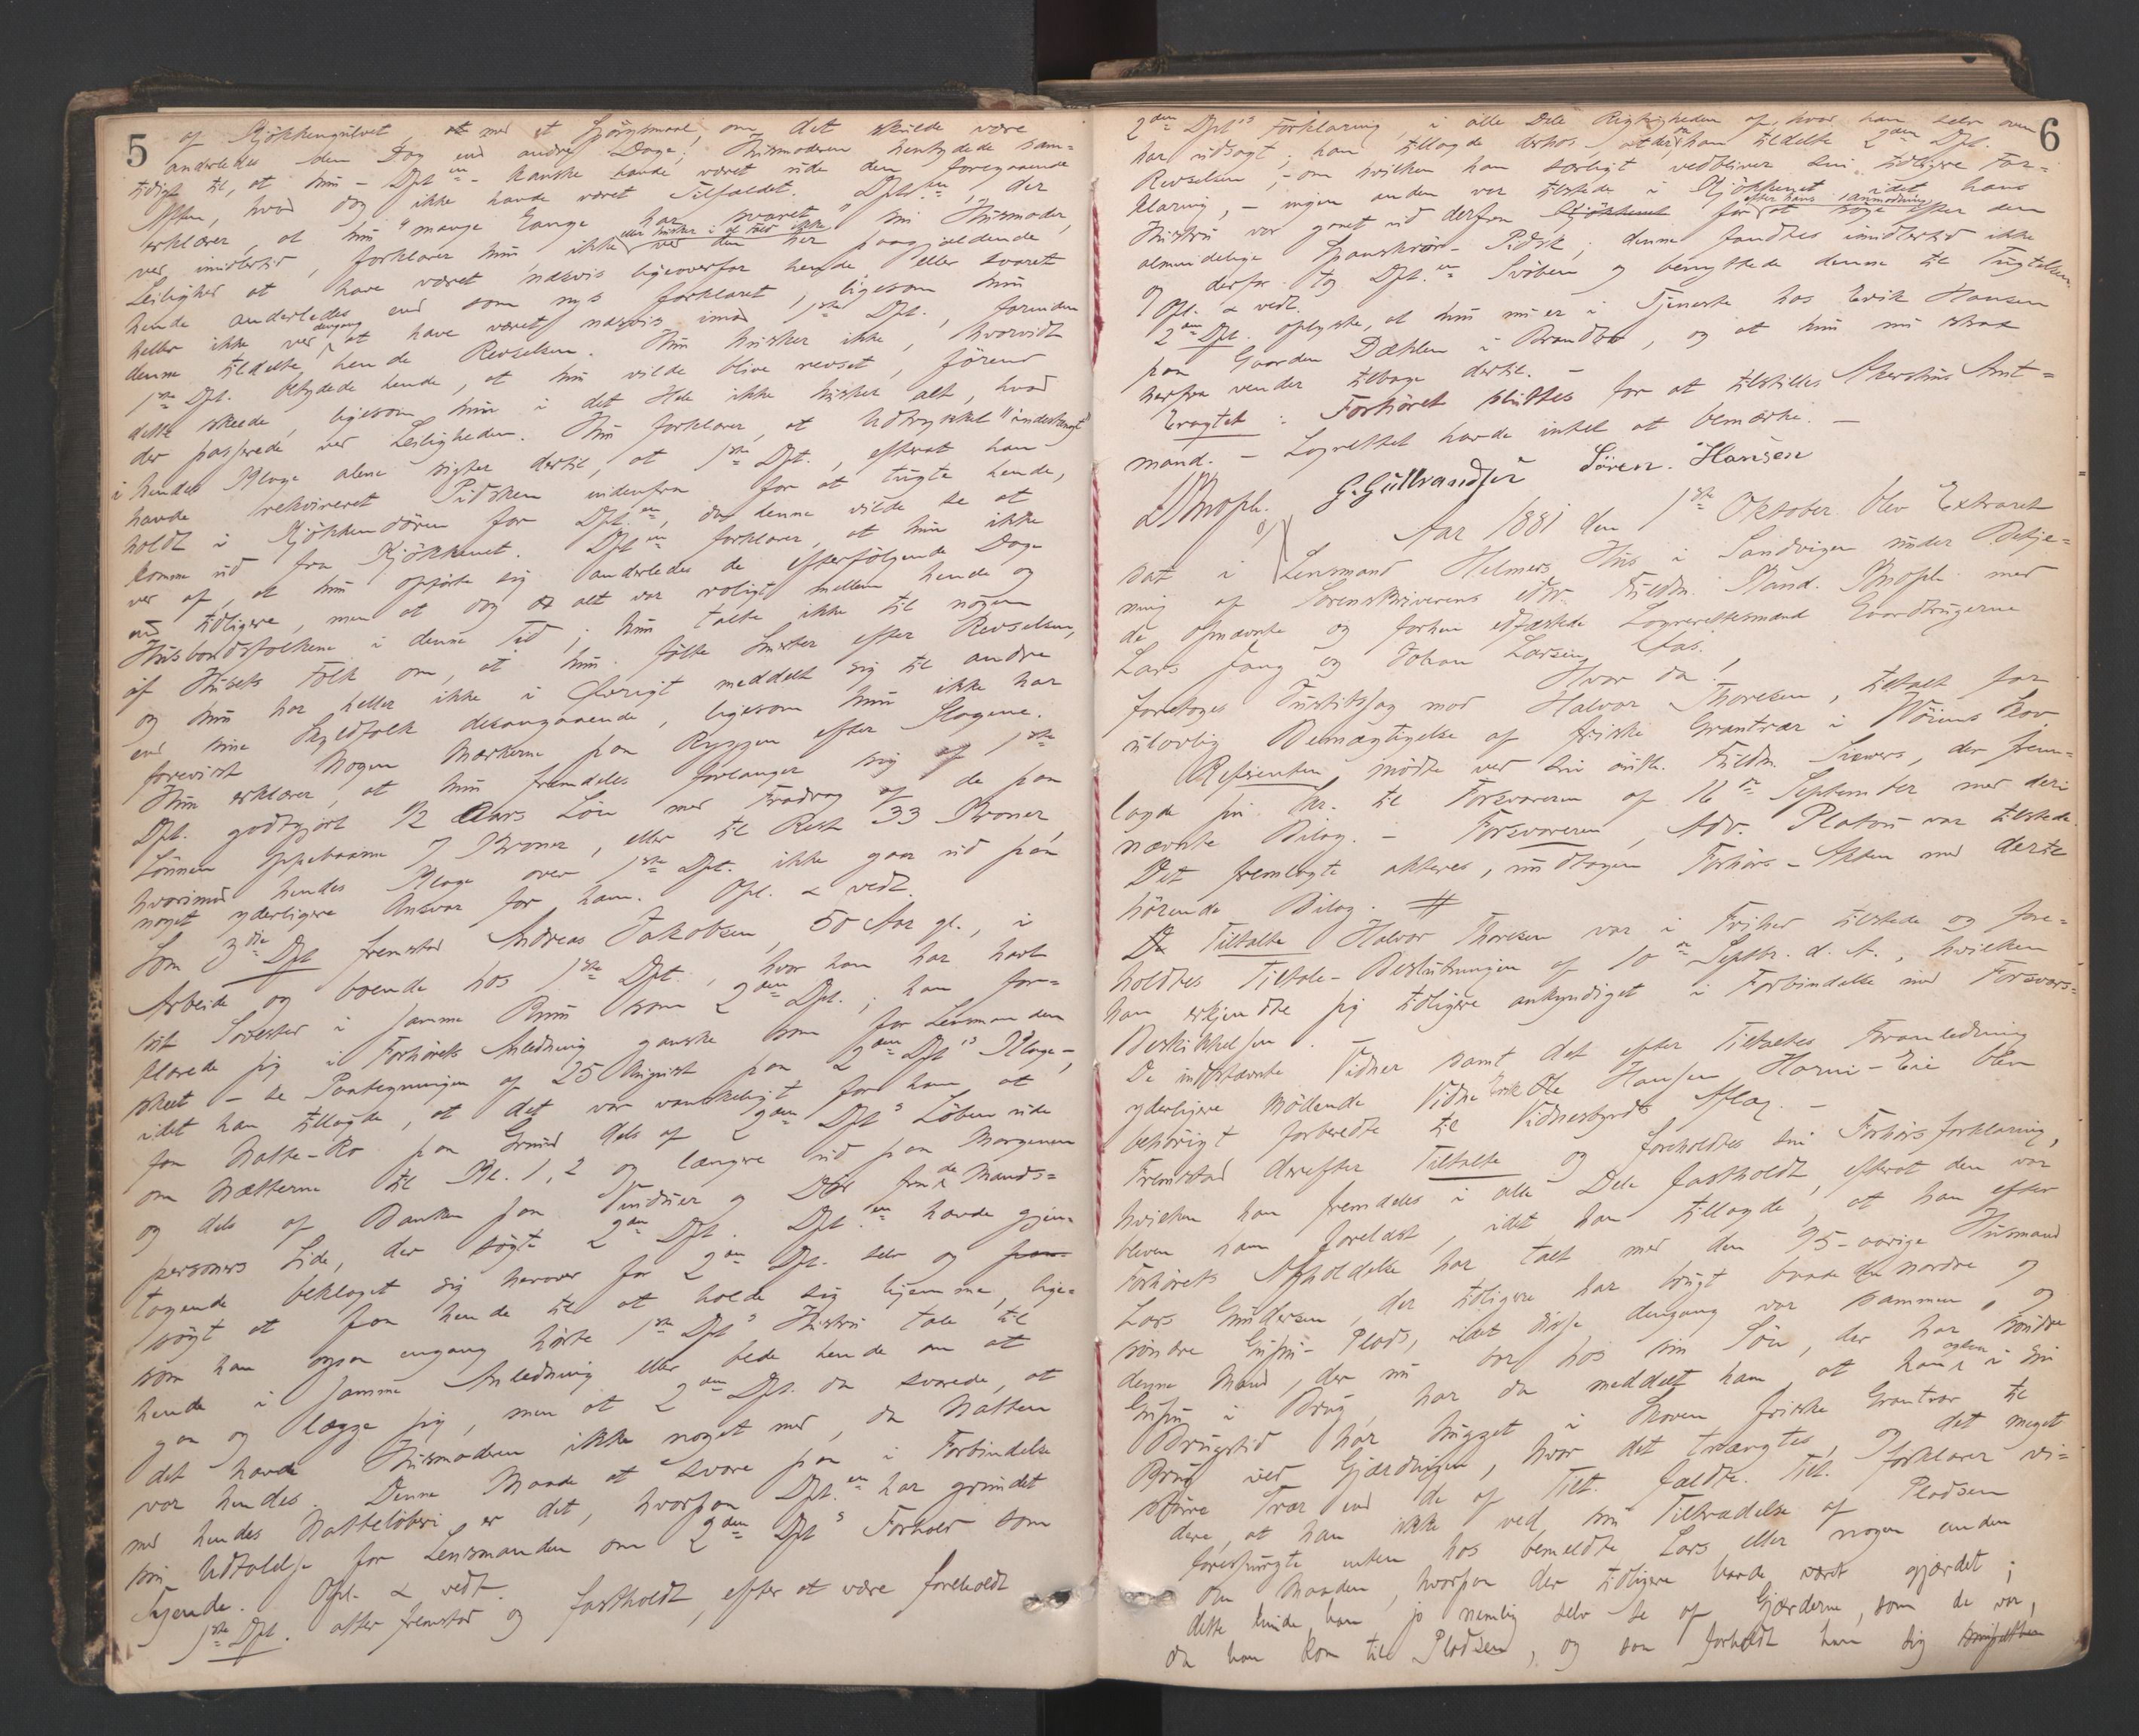 5
af Kjökkengulvet, med et Spörgsmaal, om det skulde være
anderledes den Dag end andre Dage; Husmoderen hentydede sam-
tidigt til, at hun - Dpt.en - kanske havde været ude den foregaaende
Aften, hvad dog ikke havde været Tilfældet. Dpt.en, der
erklærer, at hun "mange Gange har svaret" sin Husmoder,
ved imidlertid, forklarer hun, ikke eller husker i al Fald ikke ved den her paagjældende
Leilighed at have været næsvis ligeoverfor hende eller svaret
hende anderledes end som nys forklaret, ligesom hun
heller ikke ved dengang at have været næsvis imod 1ste Dpt., forinden
denne tildelte hende Revselsen. Hun husker ikke, hvorvidt
1ste Dpt. betydede hende, at hun vilde blive revset, förend
dette skeede, ligesom hun i det Hele ikke husker alt, hvad
der passerede ved Leiligheden. Hun forklarer, at Udtrykket "indestængt"
i hendes Klage alene sigter dertil, at 1ste Dpt., efterat han
havde rekvireret Pidsken indenfra for at tugte hende,
holdt i Kjökkendören for Dpt.en, da denne vilde se at
komme ud fra Kjökkenet. Dpt.en forklarer, at hun ikke
ved af, at hun opförte sig anderledes de efterfölgende Dage
end tidligere, men at dog alt var roligt mellem hende og
Husbondsfolkene i denne Tid; hun talte ikke til nogen
af Husets Folk om, at hun fölte Smerter efter Revselsen,
og hun har heller ikke i Övrigt meddelt sig til andre
end sine Skyldfolk desangaaende, ligesom hun ikke har
forevist Nogen Mærkerne paa Ryggen efter Slagene.
Hun erklærer, at hun fremdeles forlanger sig af 1ste
Dpt. godtgjort 1/2 Aars Lön med Fradrag af de paa
Lönnen oppebaarne 7 Kroner, eller til Rest 33 Kroner,
hvorimod hendes Klage over 1ste Dpt. ikke gaar ud paa
noget yderligere Ansvar for ham. Opl. & vedt.
Som 3die Dpt. fremstod Andreas Jakobsen, 50 Aar gl., i
Arbeide og boende hos 1ste Dpt., hvor han har havt
sit Sovested i samme Rum som 2den Dpt.; han for-
klarede sig i Forhörets Anledning ganske som for Lensmanden
skeet - se Paategningen af 25 August paa 2den Dpts Klage -,
idet han tillagde, at det var vanskeligt for ham at
faa Natte-Ro paa Grund dels af 2den Dpts Löben ude
om Nætterne til Kl. 1, 2 og længere ud paa Morgenen
og dels af Banken paa Vinduer og Dör fra de Mands-
personers Side, der sögte 2den Dpt. Dpt.en havde gjen-
tagende beklaget sig herover for 2den Dpt. selv og
sögt at faa hende til at holde sig hjemme, lige-
som han ogsaa engang hörte 1ste Dpts Hustru tale til
hende i samme Anledning eller bede hende om at
gaa og lægge sig, men at 2den Dpt. da svarede, at
det havde Husmoderen ikke noget med, da Natten
var hendes. Denne Maade at svare paa i Forbindelse
med hendes Natteløberi er det, hvorpaa Dpt.en har grundet
sin Udtalelse for Lensmanden om 2den Dpts Forhold som
Tjenende. Opl. & vedt.
1ste Dpt. atter fremstod og fastholdt, efter at være foreholdt
6
2den Dpts Forklaring, i alle Dele Rigtigheden af, hvad han selv oven
har udsagt; han tillagde derhos, at da han tildelte 2den Dpt.
Revselsen, - om hvilken han særligt vedbliver sin tidligere For-
klaring, - ingen anden var tilstede i Kjökkenet, idet hans
Hustru var gaaet ud derfra efter hans Anmodning for at söge efter den
almindelige Spanskrörs-Pidsk; denne fandtes imidlertid ikke
og derfor tog Dpt.en Svöben og benyttede denne til Tugtelsen.
Opl. & vedt.
2den Dpt. oplyste, at hun nu er i Tjeneste hos Erik Hansen
paa Gaarden Dæhlen i Brandbo, og at hun nu strax
herfra vender tilbage dertil. -
Eragtet: Forhöret sluttes for at tilstilles Akershus Amt-
mand. - Lagrettet havde intet at bemærke. -
G. Gulbrandsen Sören. Hansen
Aar 1881 den 1ste Oktober blev Extraret
sat i Lensmand Helmers Hus i Sandvigen under Betje-
ning af Sorenskriverens edsv. Fuldm. Kand. Knoph med
de opnævnte og forhen edfæstede Lagrettesmænd Gaardbrugerne
Lars Jong og Johan Larsen Aas.
Hvor da:
foretoges Justitssag mod Halvor Thoresen, tiltalt for
ulovlig Bemægtigelse af friske Grantrær i Wöiens Skov.
Referenten mödte ved sin Fuldm. Siewers, der frem-
lagde sin Skr. til Forsvareren af 16de September med deri
nævnte Bilag. - Forsvareren, Adv. Platou var tilstede.
Det fremlagte akteres, undtagen Forhörs-Akten med dertil
hörende Bilag. #
Tiltalte Halvor Thoresen var i Frihed tilstede og fore-
holdtes Tiltale-Beslutningen af 10de Septbr. d. A., hvilken
han erkjendte sig tidligere ankyndiget i Forbindelse med Forsvars-
Beskikkelsen.
De indstævnte Vidner samt det efter Tiltaltes Foranledning
yderligere mödende Vidne Erik Ole Hansen Horni-Eie blev
behörigt forberedte til Vidnesbyrds Aflæg. -
Fremstod derefter Tiltalte og foreholdtes sin Forhörsforklaring,
hvilken han fremdeles i alle Dele fastholdt, efterat den var
bleven ham forelæst, idet han tillagde, at han efter
Forhörets Afholdelse har talt med den 95-aarige Husmand
Lars Gundersen, der tidligere har brugt baade den nordre og
söndre Gupu-Plads, idet disse dengang var sammen, og
denne Mand, der nu bor hos sin Sön, der har söndre
Gupu i Brug, har da meddelt ham, at han ogsaa i sin
Brugstid har hugget i Skoven friske Grantrær til
Brug ved Gjærdingen, hvor det trængtes, og det meget
större Trær end de af Tilt. fældte. Tilt. forklarer vi-
dere, at han ikke ved sin Tiltrædelse af Pladsen
forespurgte enten hos bemeldte Lars eller nogen anden
om Maaden, hvorpaa der tidligere havde været gjærdet;
dette kunde han jo nemlig selv se af Gjærderne, som de var,
da han kom til Pladsen, og saa forholdt han sig